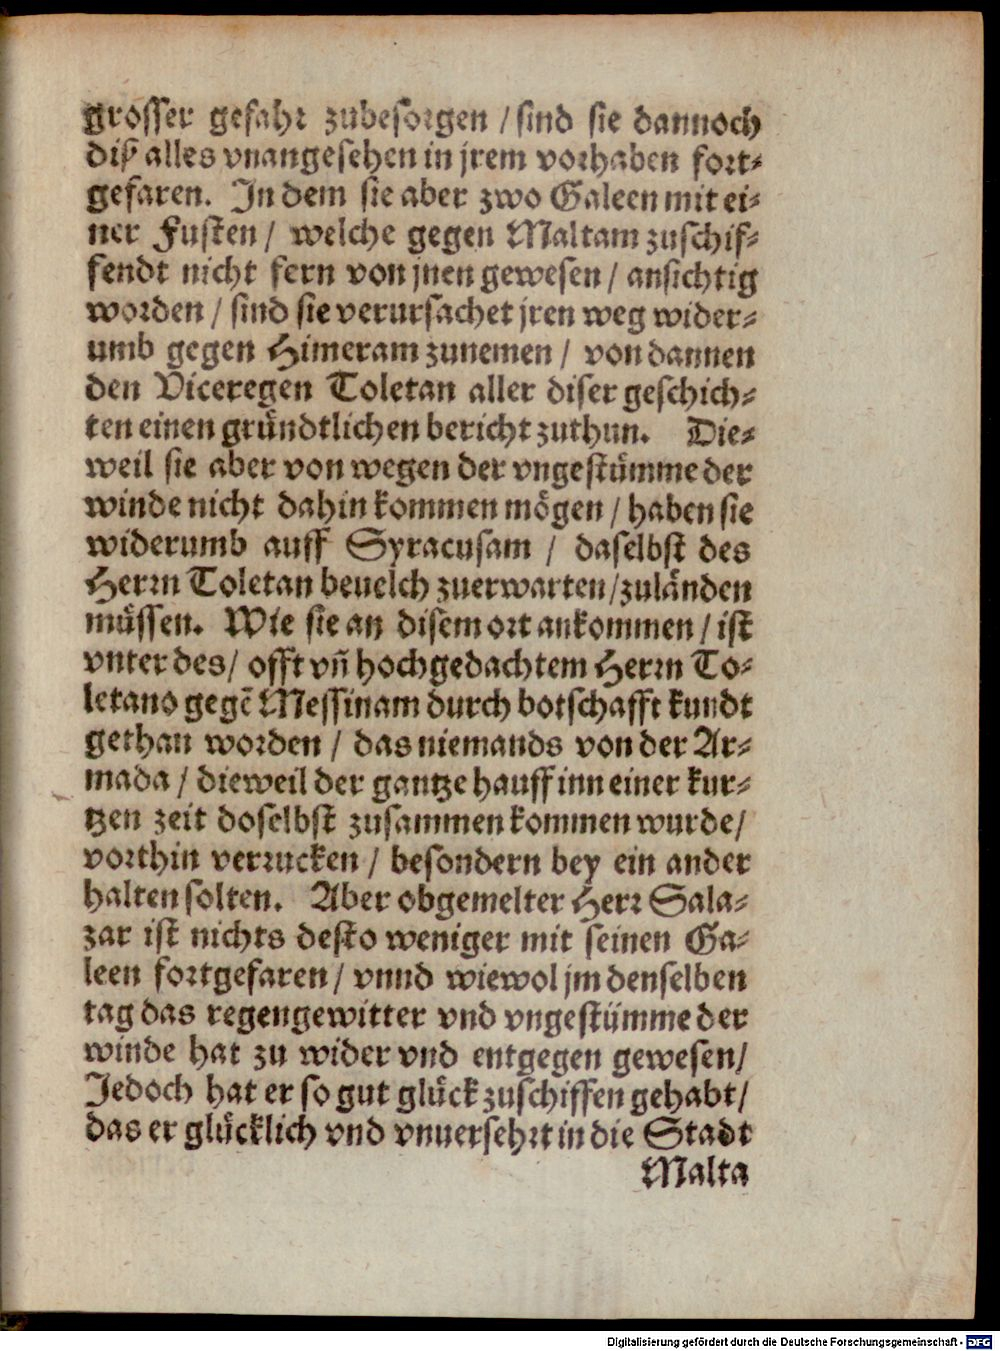 grosser gefahr zubesorgen / sind sie dannoch
diß alles vnangesehen in jrem vorhaben fort⸗
gefaren. In dem sie aber zwo Galeen mit ei⸗
ner Fusten / welche gegen Maltam zuschif⸗
fendt nicht fern von jnen gewesen / ansichtig
worden / sind sie verursachet jren weg wider⸗
umb gegen Himeram zunemen / von dannen
den Viceregen Toletan aller diser geschich⸗
ten einen gründtlichen bericht zuthun. Die⸗
weil sie aber von wegen der vngestümme der
winde nicht dahin kommen mögen / haben sie
widerumb auff Syracusam / daselbst des
Herrn Toletan beuelch zuerwarten / zuländen
müssen. Wie sie an disem ort ankommen / ist
vnter des / offt vñ hochgedachtem Herrn To⸗
letano gegẽ Messinam durch botschafft kundt
gethan worden / das niemands von der Ar⸗
mada / dieweil der gantze hauff inn einer kur⸗
tzen zeit doselbst zusammen kommen wurde /
vorthin verrucken / besondern bey ein ander
halten solten. Aber obgemelter Herr Sala⸗
zar ist nichts desto weniger mit seinen Ga⸗
leen fortgefaren / vnnd wiewol jm denselben
tag das regengewitter vnd vngestümme der
winde hat zu wider vnd entgegen gewesen /
Jedoch hat er so gut glück zuschiffen gehabt /
das er glücklich vnd vnuersehrt in die Stadt
Malta
Digitalisierung gefördert durch die Deutsche Forschungsgemeinschaft - DFG